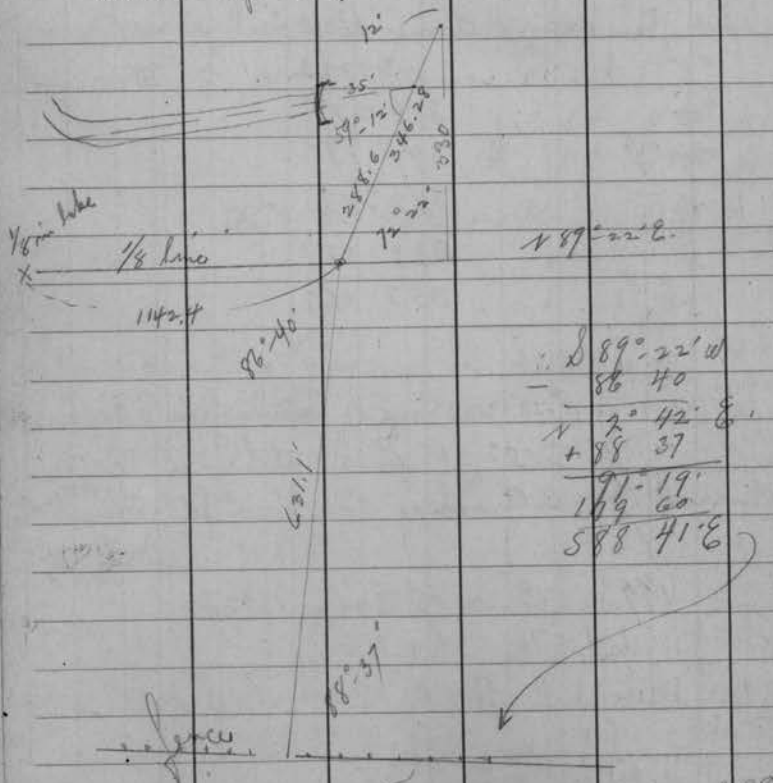 12'
35'
59°-12'
346.28
288.6
330
72° 22'
1/8 in lake
X
1/8 line
N 89°-22' E.
1142.4
86°-40'
∴ S 89°-22' W
- 86 40
N 2° 42' E.
+ 88 37
91-19'
179 60
S 88 41' E
631.1'
88°-37'
fence